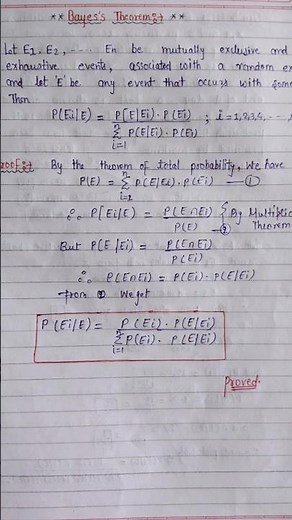 ** Bayes's Theorem:- **
Let E1, E2, ---- En be mutually exclusive and
exhaustive events, associated with a random
and let 'E' be any event that occurs with
Then
P(Ei/E) = P[E|Ei)·P(Ei) / Σ_{i=1}^{n} P(E|Ei)·P(Ei) ; i=1,2,3,4,--
By the theorem of total probability, We have
P(E) = Σ_{i=1}^{n} P(E/Ei)·P(Ei) —①
∴ P[Ei/E) = P(E∩Ei) / P(E) {By —②
Theorem
But P(E/Ei) = P(E∩Ei) / P(Ei)
∴ P(E∩Ei) = P(Ei)·P(E/Ei)
from ② We get
P(Ei/E) = P(Ei)·P(E/Ei) / Σ_{i=1}^{n} P(Ei)·P(E/Ei)
Proved.